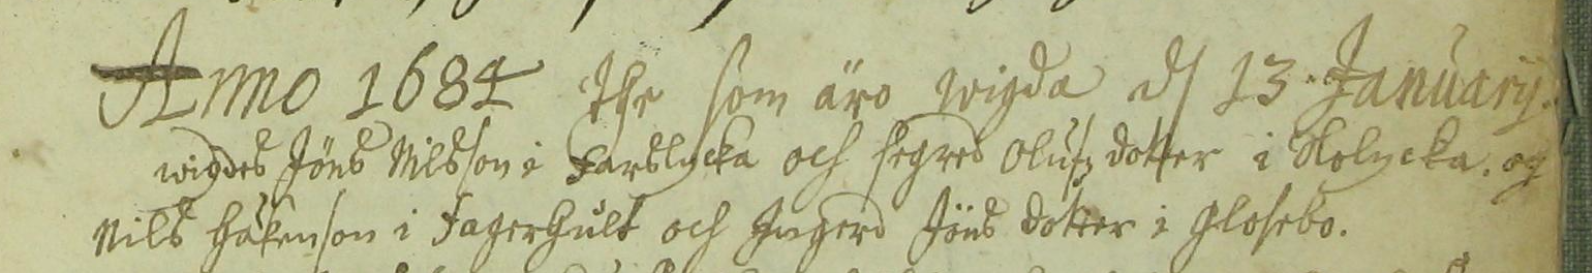 Anno 1684 The som äro wigda d/ 13. January.
wigdes Jöns Nilsson i Farslycka och segred Olufz dotter i Slolycka. og
Nils Håkenson i Fagerhult och Ingerd Jöns dotter i Glosebo.